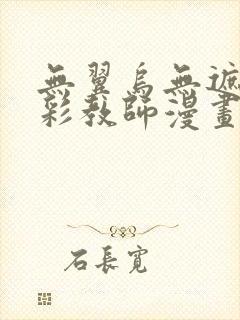 無翼烏無遮
彩教師漫畫
石長寬